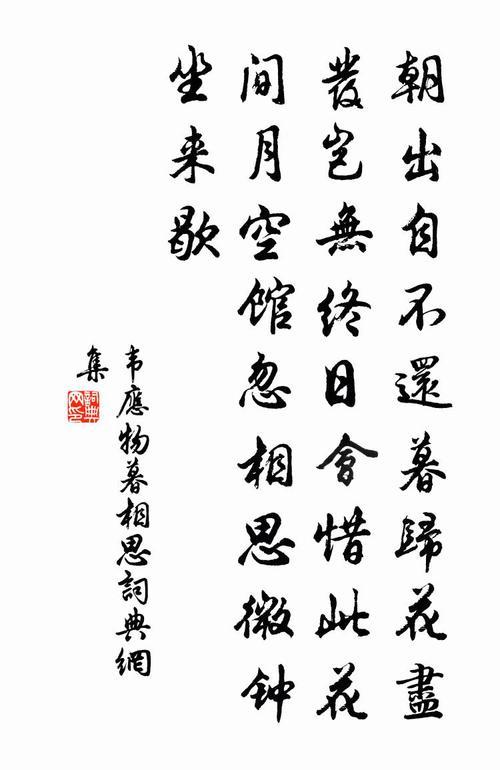 朝出自不還暮歸花盡
發豈無終日會惜此花
间月空馆忽相思微钟
坐来歇
韦應物暮相思詞典網
集
詞典
网